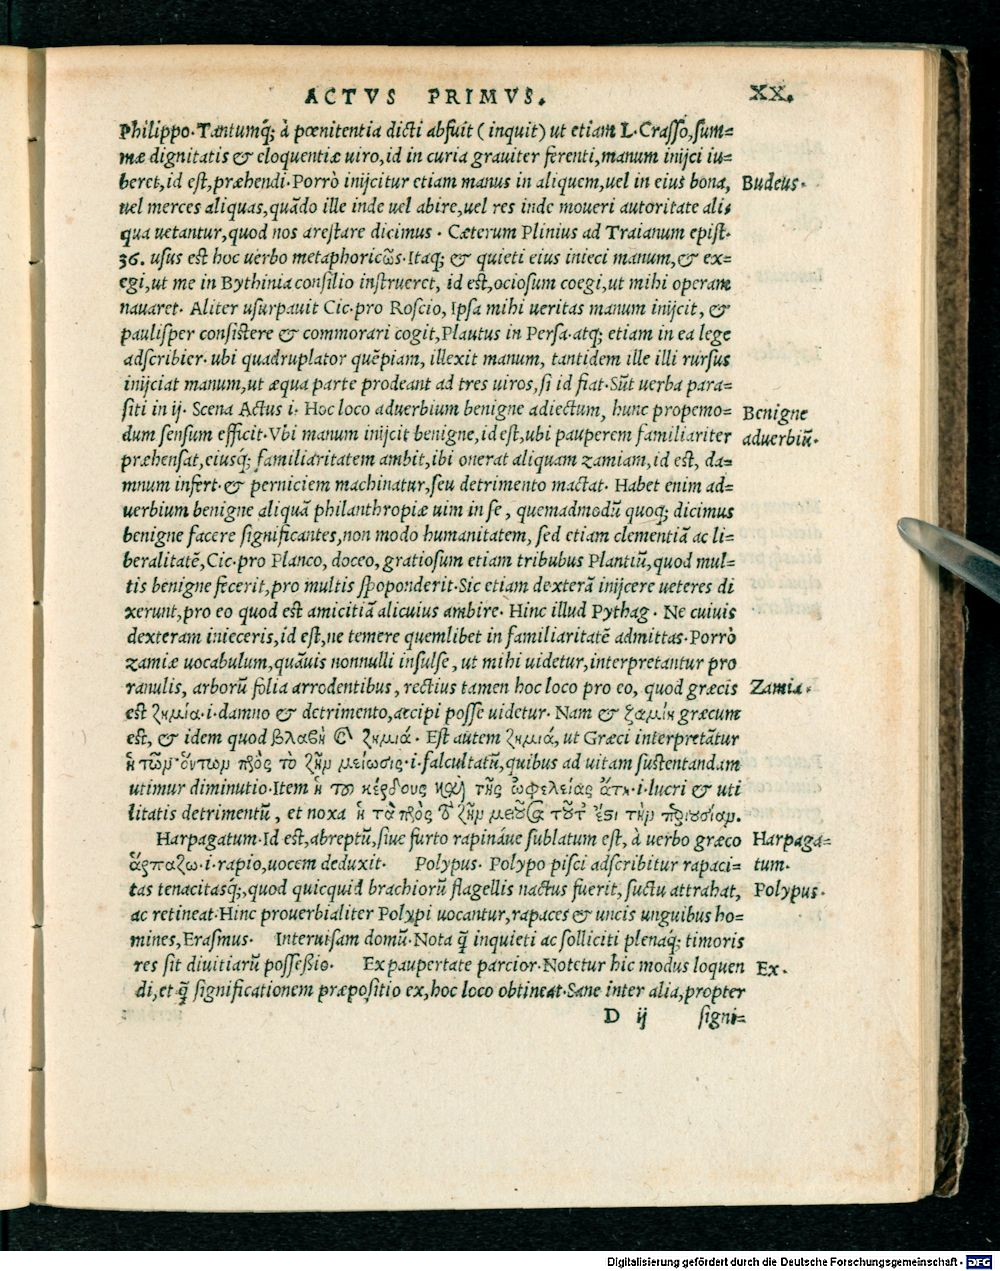 ACTVS PRIMVS.
XX.
Philippo. Tantumq́; à pœnitentia dicti abfuit (inquit) ut etiam L. Crasso, sum=
mæ dignitatis & eloquentiæ uiro, id in curia grauiter ferenti, manum inijci iu=
beret, id est, præhendi. Porrò inijcitur etiam manus in aliquem, uel in eius bona,
Budeus.
uel merces aliquas, quãdo ille inde uel abire, uel res inde moueri autoritate ali=
qua uetantur, quod nos arestare dicimus. Cæterum Plinius ad Traianum epist.
36. usus est hoc uerbo metaphoricω̃s. Itaq; & quieti eius inieci manum, & ex=
egi, ut me in Bythinia consilio instrueret, id est, ociosum coegi, ut mihi operam
nauaret. Aliter usurpauit Cic. pro Roscio, Ipsa mihi ueritas manum inijcit, &
paulisper consistere & commorari cogit, Plautus in Persa. atq; etiam in ea lege
adscribier. ubi quadruplator quẽpiam, illexit manum, tantidem ille illi rursus
inijciat manum, ut æqua parte prodeant ad tres uiros, si id fiat. Sũt uerba para=
siti in ij. Scena Actus i. Hoc loco aduerbium benigne adiectum, hunc propemo=
Benigne
dum sensum efficit. Vbi manum inijcit benigne, id est, ubi pauperem familiariter
aduerbiũ.
præhensat, eiusq́; familiaritatem ambit, ibi onerat aliquam zamiam, id est, da=
mnum infert. & perniciem machinatur, seu detrimento mactat. Habet enim ad=
uerbium benigne aliquã philanthropiæ uim in se, quemadmodũ quoq; dicimus
benigne facere significantes, non modo humanitatem, sed etiam clementiã ac li=
beralitatẽ, Cic. pro Planco, doceo, gratiosum etiam tribubus Plantiũ, quod mul=
tis benigne fecerit, pro multis spoponderit. Sic etiam dexterã inijcere ueteres di
xerunt, pro eo quod est amicitiã alicuius ambire. Hinc illud Pythag. Ne cuiuis
dexteram inieceris, id est, ne temere quemlibet in familiaritatẽ admittas. Porrò
zamiæ uocabulum, quãuis nonnulli insulse, ut mihi uidetur, interpretantur pro
ranulis, arborũ folia arrodentibus, rectius tamen hoc loco pro eo, quod græcis
Zamia.
est ζημία. i. damno & detrimento, accipi posse uidetur. Nam & ζαμίη græcum
est, & idem quod βλαβὴ ζημιά. Est autem ζημιά, ut Græci interpretãtur
ἡ τῶν ὄντων πρὸς τὸ ζῆν μείωσις. i. falcultatũ, quibus ad uitam sustentandam
utimur diminutio. Item ἡ τοῦ κέρδους καὶ τῆς ὠφελείας ἄτη. i. lucri & uti
litatis detrimentũ, et noxa ἡ τὰ πρὸς τὸ ζῆν
Harpagatum. Id est, abreptũ, siue furto rapináue sublatum est, à uerbo græco
Harpaga=
ἁρπαζω. i. rapio, uocem deduxit. Polypus. Polypo pisci adscribitur rapaci=
tum.
tas tenacitasq́;, quod quicquid brachiorũ flagellis nactus fuerit, suctu attrahat,
Polypus.
ac retineat. Hinc prouerbialiter Polypi uocantur, rapaces & uncis unguibus ho=
mines, Erasmus. Interuisam domũ. Nota q̃ inquieti ac solliciti plenaq́; timoris
res sit diuitiarũ possessio. Ex paupertate parcior. Notetur hic modus loquen
Ex.
di, et q̃ significationem præpositio ex, hoc loco obtineat. Sane inter alia, propter
D ij signi=
Digitalisierung gefördert durch die Deutsche Forschungsgemeinschaft - DFG